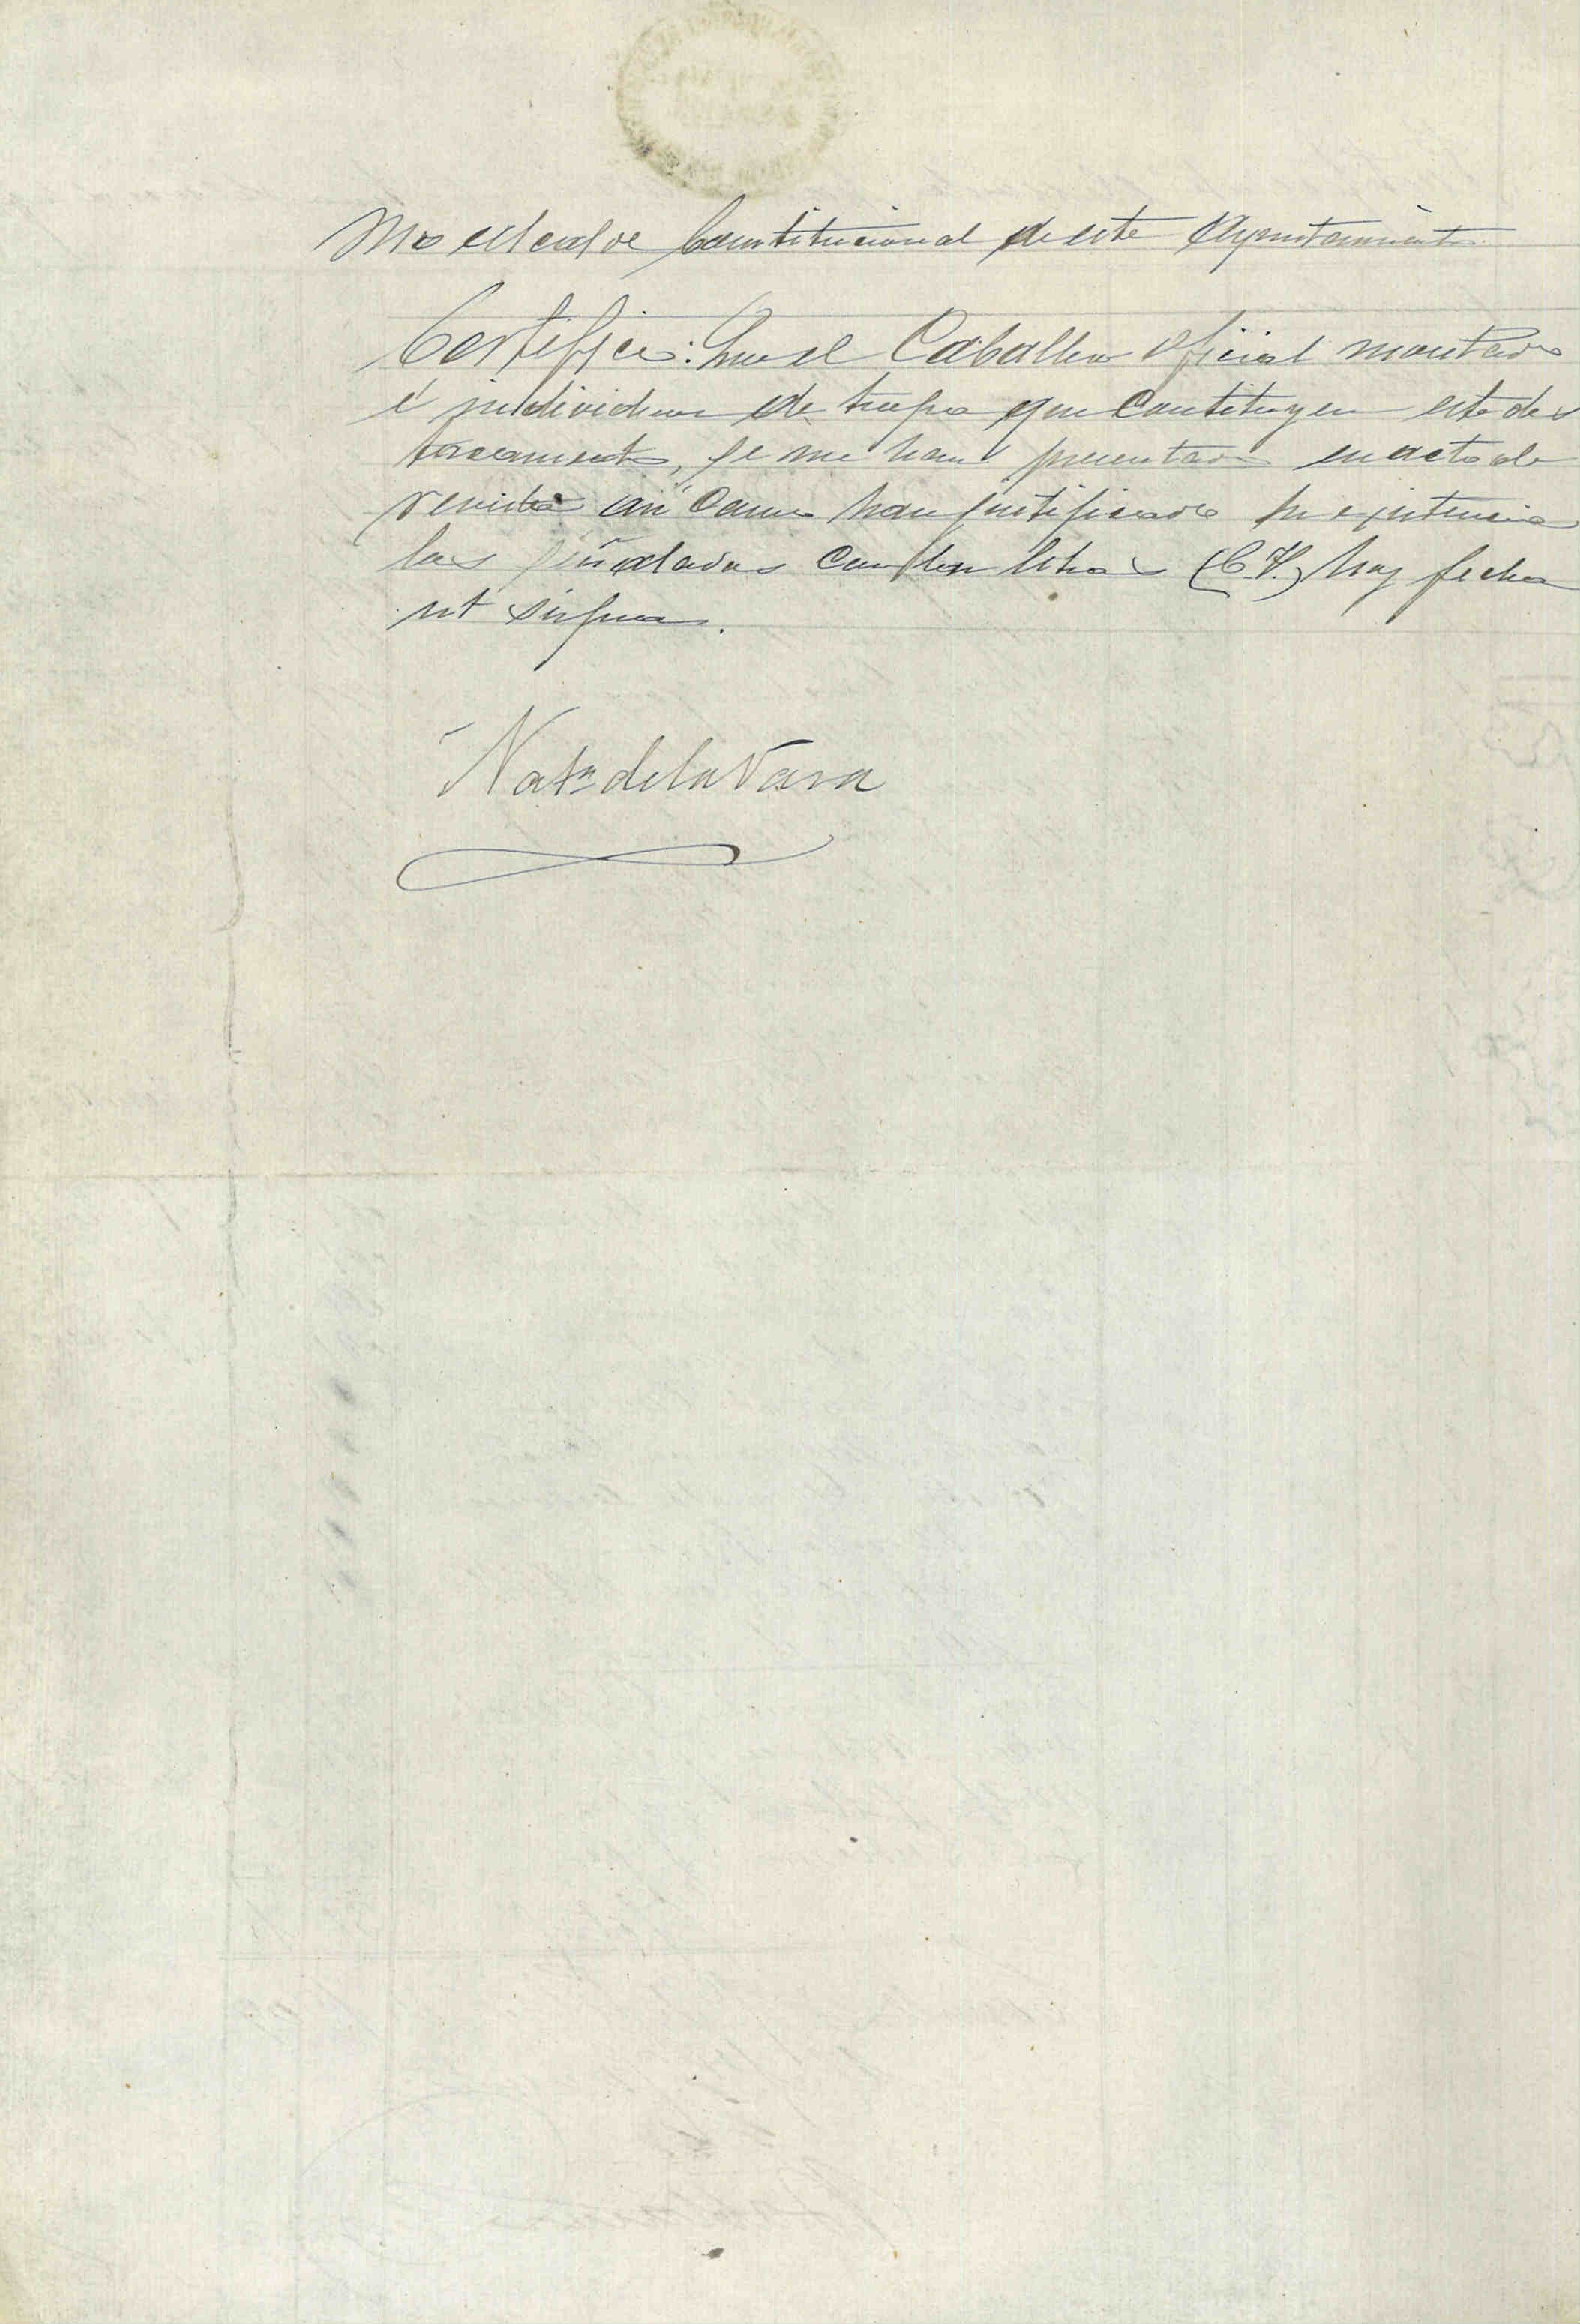 Alcalde Constitucional de este Ayuntamiento
Certifico: Que el Caballero oficial montado
é individuos de tropa que Constituyen este des
tacamento, se me han presentado en acto de
revista así Como han justificado su existencia
los señalados Con las letras (C.F.) hoy fecha
ut supra.
Nat.ª de la Vara